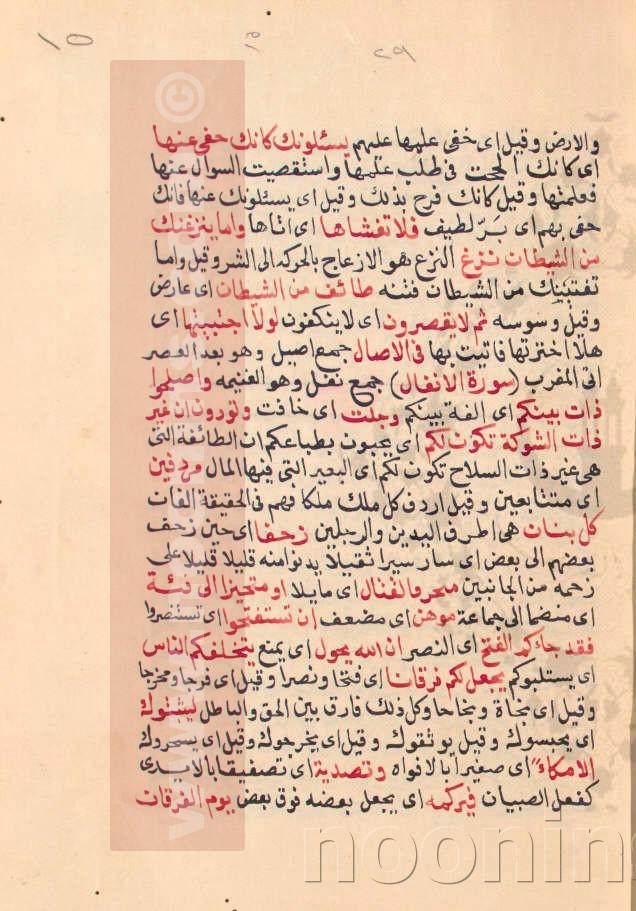 ١٥ ١٥ ٢٩
والارض وقيل اى خفى علمها عليهم يسئلونك كانك حفى عنها
اى كانك الححت فى طلب علمها واستقصيت السوال عنها
فعلمتها وقيل كانك فرح بذلك وقيل اى يسئلونك عنها فانك
حفى بهم اى بَرّ لطيف فلا تغشاها اى اتاها واما ينزغنك
من الشيطان نزغ النزغ هو الازعاج بالحركه الى الشر وقيل واما
تفتنينك من الشيطان فتنه طائف من الشيطان اى عارض
وقيل وسوسه ثم لا يقصرون اى لا ينكفون لولا اجتبيتها اى
هلا اخترتها فاتيت بها فى الاصال جمع اصيل وهو بعد العصر
الى المغرب (سورة الانفال) جمع نفل وهو الغنيمه واصلحوا
ذات بينكم اى الفة بينكم وجلت اى خافت وتودون ان غير
ذات الشوكة تكون لكم اى يحبون بطباعكم ان الطائفة التى
هى غير ذات السلاح تكون لكم اى البعير التى فيها المال مردفين
اى متتابعين وقيل اردف كل ملك ملكا فهم فى الحقيقة الفان
كل بنان هى اطرف اليدين والرجلين زحفا اى حين زحف
بعضهم الى بعض اى سار سيرا ثقيلا يدنوا منه قليلا قليلا على
زحمه من الجانبين متحرو القتال اى مايلا او متحيزا الى فئة
اى منضما الى جماعة موهن اى مضعف ان تستفتحوا اى تستنصروا
فقد جاءكم الفتح اى النصر ان الله يحول اى يمنع يتخطفكم الناس
اى يستلبوكم يجعل لكم فرقانا اى فتحا ونصرا وقيل اى فرجا ومخرجا
وقيل اى نجاة ونجاحا وكل ذلك فارق بين الحق والباطل ليثبتوك
اى يحبسوك وقيل يوثقوك وقيل اى يخرجوك وقيل اى يسحروك
الا مكاءً اى صغيرا بالافواه وتصدية اى تصفيقا بالايدى
كفعل الصبيان فيركمه اى يجعل بعضه فوق بعض يوم الفرقان
noonin